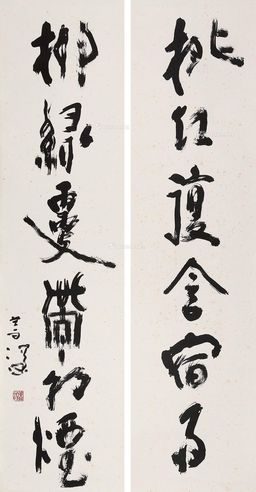 桃紅復含宿雨
柳緑更帶朝煙